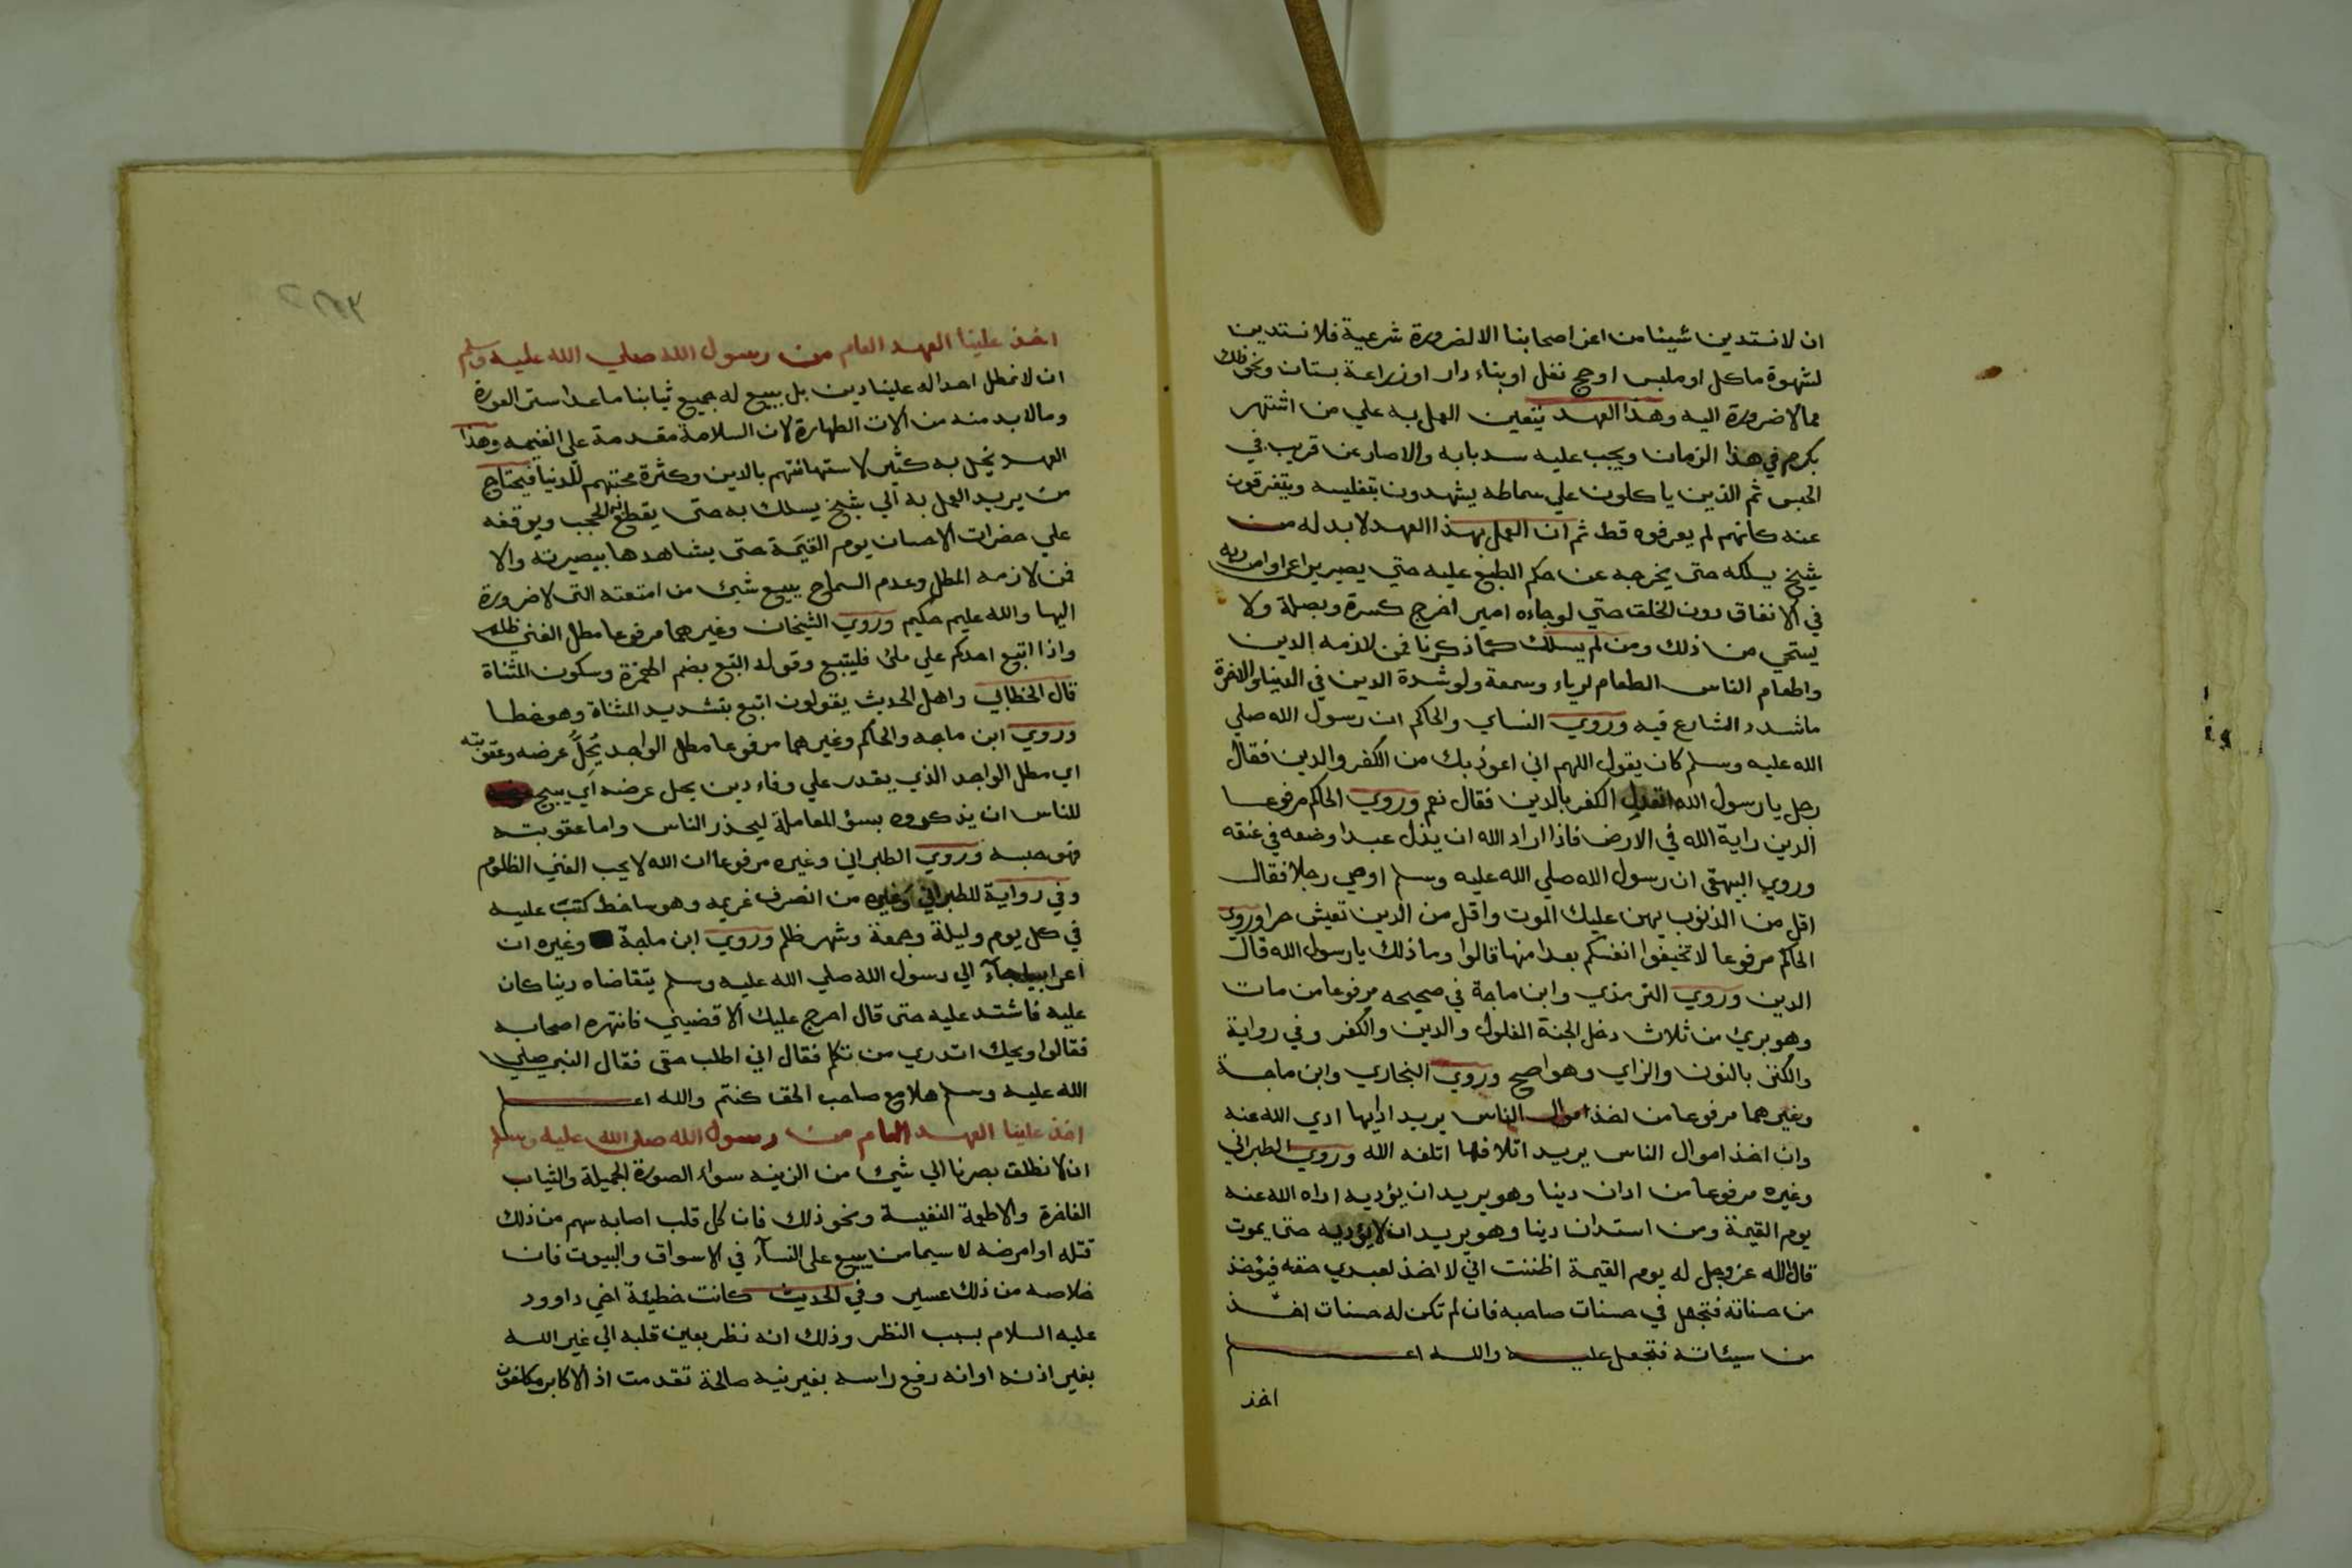 ان لا نستدين شيئا من اعز اصحابنا الا لضرورة شرعية فلا نستدين
لشهوة ماكل او ملبس او حج نفل او بناء دار او زراعة بستان ونحو ذلك
مما لا ضرورة اليه وهذا العهد يتعين العمل به علي من اشتهر
بكرم في هذا الزمان ويجب عليه سد بابه والا صار عن قريب في
الحبس ثم الذين ياكلون علي سماطه يشهدون بتفليسه ويتفرقون
عنه كانهم لم يعرفوه قط ثم ان العمل بهذا العهد لا بد له من
شيخ يسلكه حتي يخرجه عن حكم الطبع عليه حتي يصير يراعي اوامر ربه
في الانفاق دون الخلق حتي لو جاءه امير اخرج كسرة وبصلة ولا
يستحي من ذلك ومن لم يسلك كما ذكرنا فمن لازمه الدين
واطعام الناس الطعام لرياء وسمعة ولو شدة الدين في الدنيا والاخرة
ما شدد الشارع فيه وروي النساي والحاكم ان رسول الله صلي
الله عليه وسلم كان يقول اللهم اني اعوذ بك من الكفر والدين فقال
رجل يا رسول الله اتعدل الكفر بالدين فقال نعم وروي الحاكم مرفوعا
الدين راية الله في الارض فاذا اراد الله ان يذل عبدا وضعه في عنقه
وروي البيهقي ان رسول الله صلي الله عليه وسلم اوصي رجلا فقال
اقل من الذنوب يهن عليك الموت واقل من الدين تعيش حرا وروي
الحاكم مرفوعا لا تخيفوا انفسكم بعد امنها قالوا وما ذلك يا رسول الله قال
الدين وروي الترمذي وابن ماجة في صحيحه مرفوعا من مات
وهو بريء من ثلاث دخل الجنة الغلول والدين والكفر وفي رواية
والكنز بالنون والزاي وهو اصح وروي البخاري وابن ماجة
وغيرهما مرفوعا من اخذ اموال الناس يريد اداها ادي الله عنه
وان اخذ اموال الناس يريد اتلافها اتلفه الله وروي الطبراني
وغيره مرفوعا من ادان دينا وهو يريد ان يؤديه اداه الله عنه
يوم القيمة ومن استدان دينا وهو يريد ان لا يؤديه حتي يموت
قال الله عز وجل له يوم القيمة اظننت اني لا اخذ لعبدي حقه فيؤخذ
من حسناته فتجعل في حسنات صاحبه فان لم تكن له حسنات اخذ
من سيئاته فتجعل عليه والله اعلم
اخذ
اخذ علينا العهد العام من رسول الله صلي الله عليه وسلم
ان لا نمطل احدا له علينا دين بل نبيع له جميع ثيابنا ما عدا ستر العورة
وما لا بد منه من آلات الطهارة لان السلامة مقدمة علي الغنيمه وهذا
العهد يخل به كثير لاستهانتهم بالدين وكثرة محبتهم للدنيا فيحتاج
من يريد العمل به الي شيخ يسلك به حتي يقطع به الحجب ويوقفه
علي حضرات الاحسان يوم القيمة حتي يشاهدها ببصيرته والا
فمن لازمه المطل وعدم السماح ببيع شيء من امتعته التي لا ضرورة
اليها والله عليم حكيم وروي الشيخان وغيرهما مرفوعا مطل الغني ظلم
واذا اتبع احدكم علي ملئ فليتبع وقوله اتبع بضم الهمزة وسكون المثناة
قال الخطابي واهل الحديث يقولون اتبع بتشديد المثناة وهو خطا
وروي ابن ماجه والحاكم وغيرهما مرفوعا مطل الواجد يحل عرضه وعقوبته
اي مطل الواجد الذي يقدر علي وفاء دين يحل عرضه اي يبيح
للناس ان يذكروه بسؤ المعاملة ليحذر الناس واما عقوبته
فهو حبسه وروي الطبراني وغيره مرفوعا ان الله لا يحب الغني الظلوم
وفي رواية للطبراني وغيره من انصرف غريمه وهو ساخط كتب عليه
في كل يوم وليلة وجمعة وشهر ظلم وروي ابن ماجة وغيره ان
اعرابيا جاء الي رسول الله صلي الله عليه وسلم يتقاضاه دينا كان
عليه فاشتد عليه حتي قال احرج عليك الا قضيتني فانتهره اصحابه
فقالوا ويحك اتدري من تكلم فقال اني اطلب حقي فقال النبي صلي
الله عليه وسلم هلا مع صاحب الحق كنتم والله اعلم
اخذ علينا العهد العام من رسول الله صلي الله عليه وسلم
ان لا نطلق بصرنا الي شيء من الزينه سواء الصورة الجميلة والثياب
الفاخرة والاطعمة النفيسة ونحو ذلك فان كل قلب اصابه سهم من ذلك
قتله او امرضه لا سيما من يبيع علي النسآء في الاسواق والبيوت فان
خلاصه من ذلك عسير وفي الحديث كانت خطيئة اخي داوود
عليه السلام بسبب النظر وذلك انه نظر بعين قلبه الي غير الله
بغير اذنه او انه رفع راسه بغير نيه صالحة تقدمت اذ الاكابر مكلفون